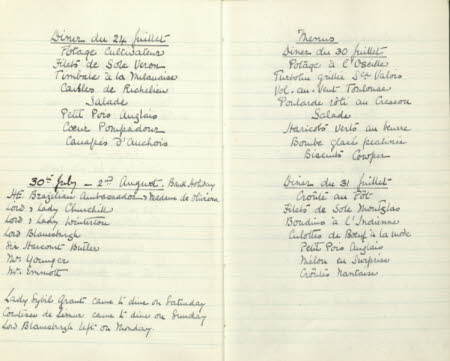 Diner du 24 Juillet
Potage Cultivateur
Filets de Sole Veron
Timbale à la Milanaise
Cailles de Richelieu
Salade
Petit Pois Anglais
Cœur Pompadour
Canapes d'Anchois
30th July - 2nd August. Bank Holiday
H.E. Brazilian Ambassador & Madame de Oliveira
Lord & Lady Churchill
Lord & Lady Winterton
Lord Blanesburgh
Sir Harcourt Butler
Mr. Younger
Mr. Emmott
Lady Sybil Grant came to dine on Saturday
Comtesse de came to dine on Sunday
Lord Blanesburgh left on Monday.
Menus
Diner du 30 Juillet
Potage à l'Oseille
Turbotin grillé Sce Valois
Vol-au-Vent Toulouse
Poularde rôti au Cresson
Salade
Haricots Verts au beurre
Bombe glacé
Biscuits Cowper
Diner du 31 Juillet
Croûte au Pot
Filets de Sole Montglas
Boudins à l'Indienne
Culottes de Bœuf à la mode
Petit Pois Anglais
Melon en Surprise
Croûtes Nantaise